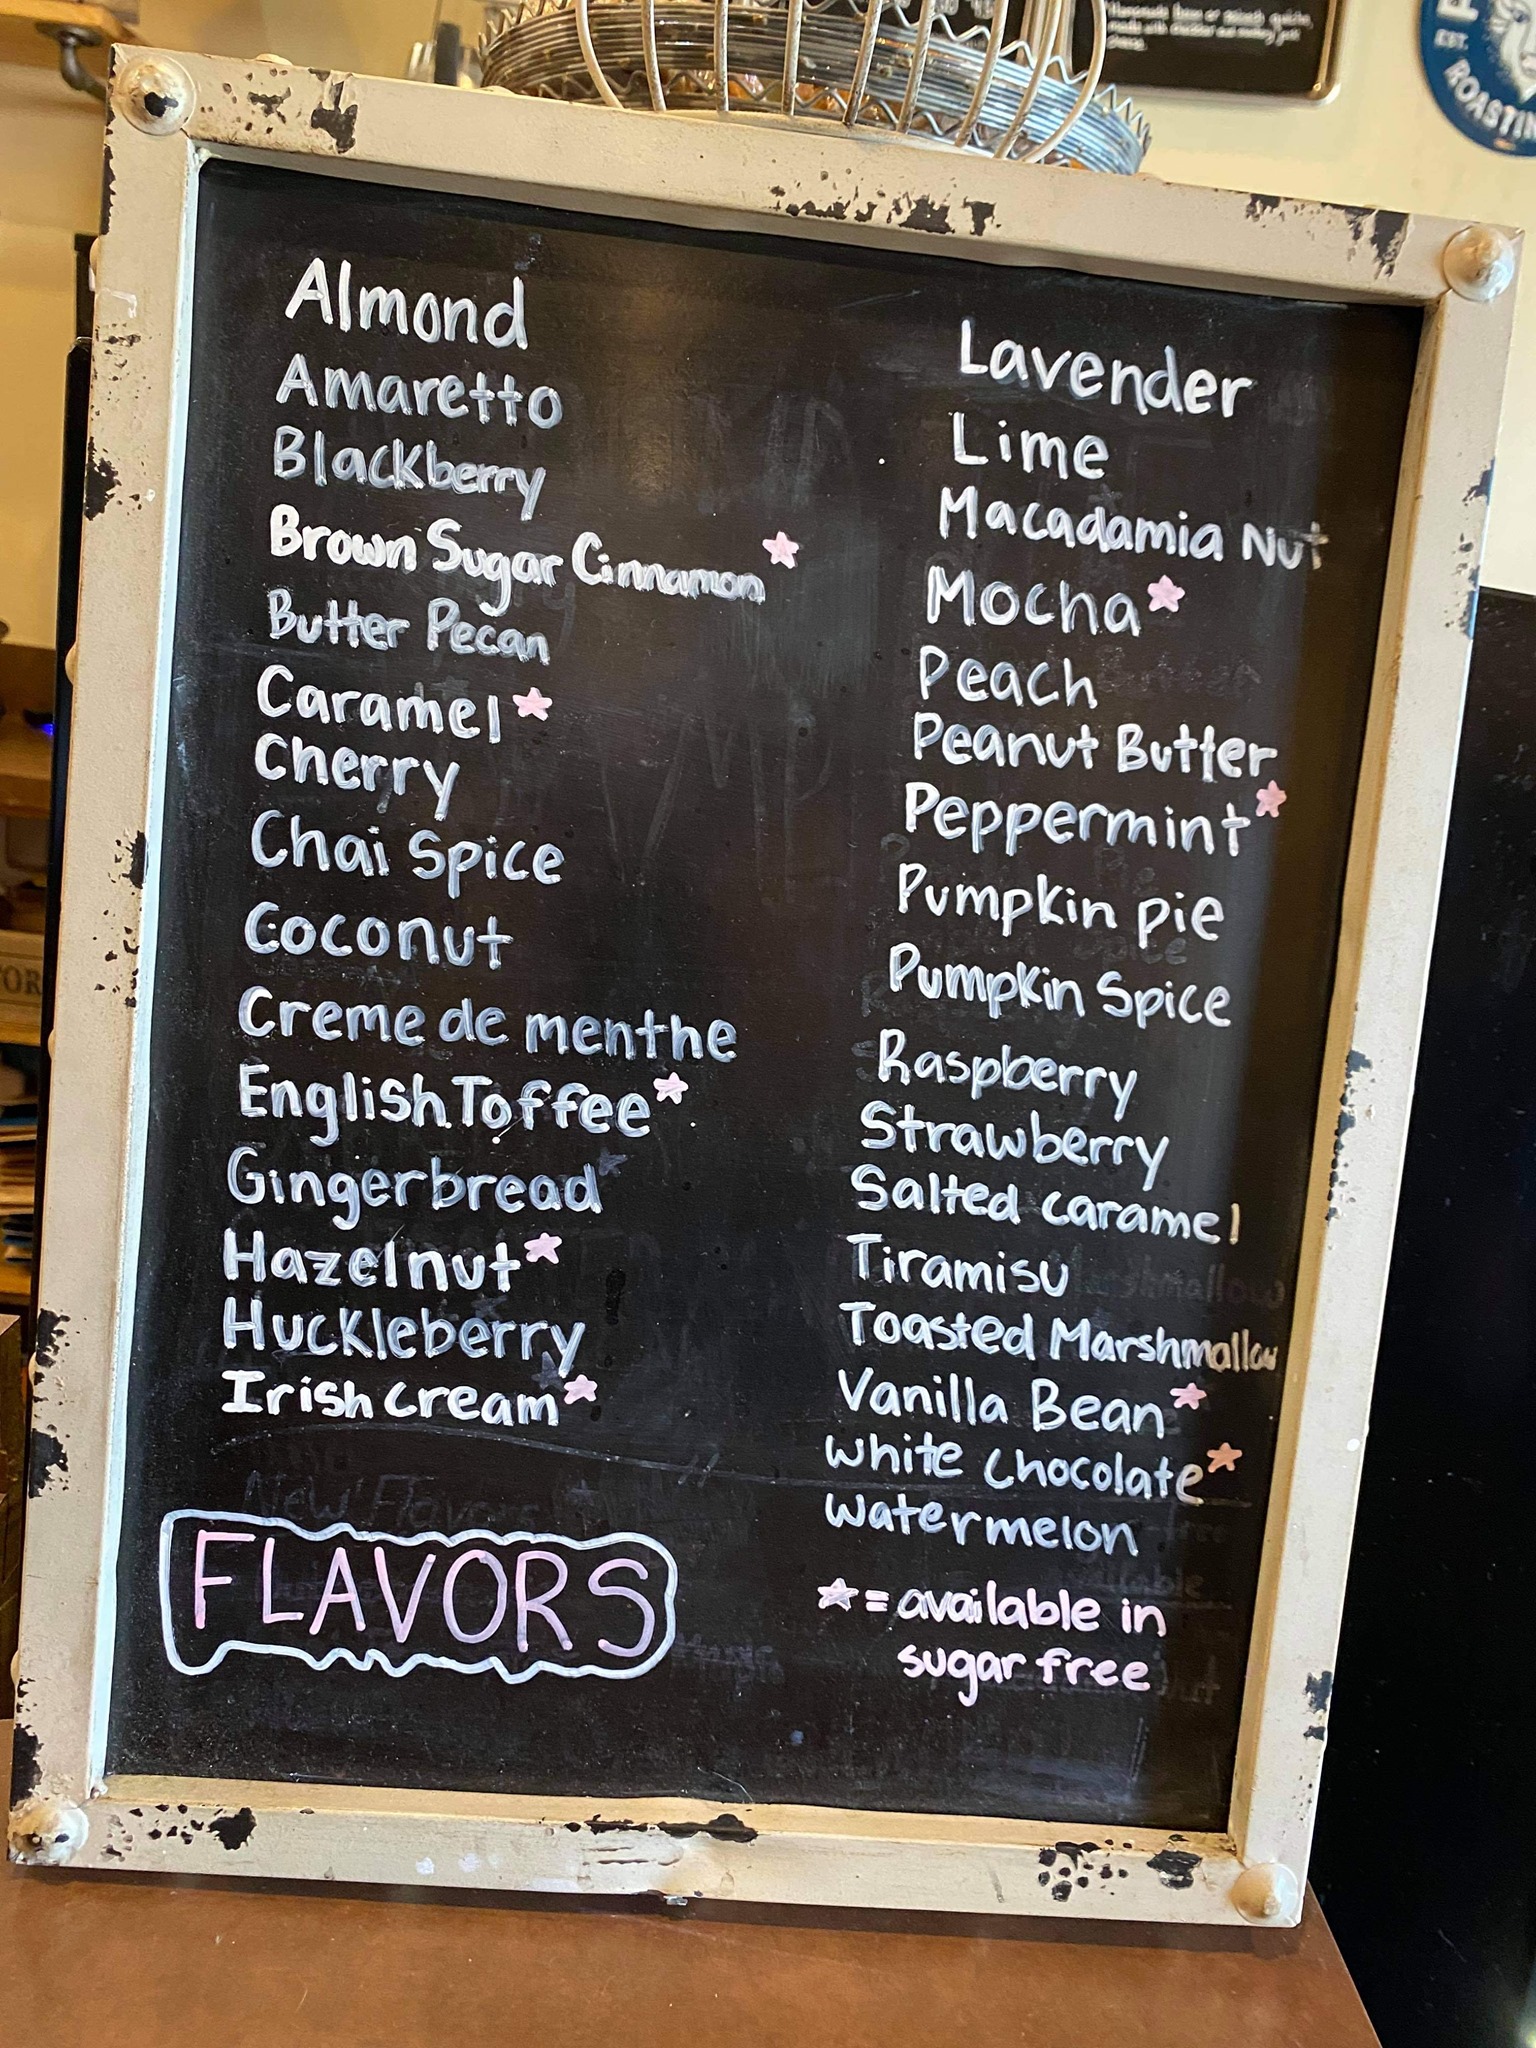 Almond
Amaretto
Blackberry
Brown Sugar Cinnamon ★
Butter Pecan
Caramel ★
Cherry
Chai Spice
Coconut
Creme de menthe
English Toffee ★
Gingerbread
Hazelnut ★
Huckleberry
Irish cream ★
New Flavors
FLAVORS
Lavender
Lime
Macadamia Nut
Mocha ★
Peach
Peanut Butter
Peppermint ★
Pumpkin pie
Pumpkin Spice
Raspberry
Strawberry
Salted caramel
Tiramisu
Toasted Marshmallow
Vanilla Bean ★
White Chocolate ★
Watermelon
★ = available in
sugar free
EST.